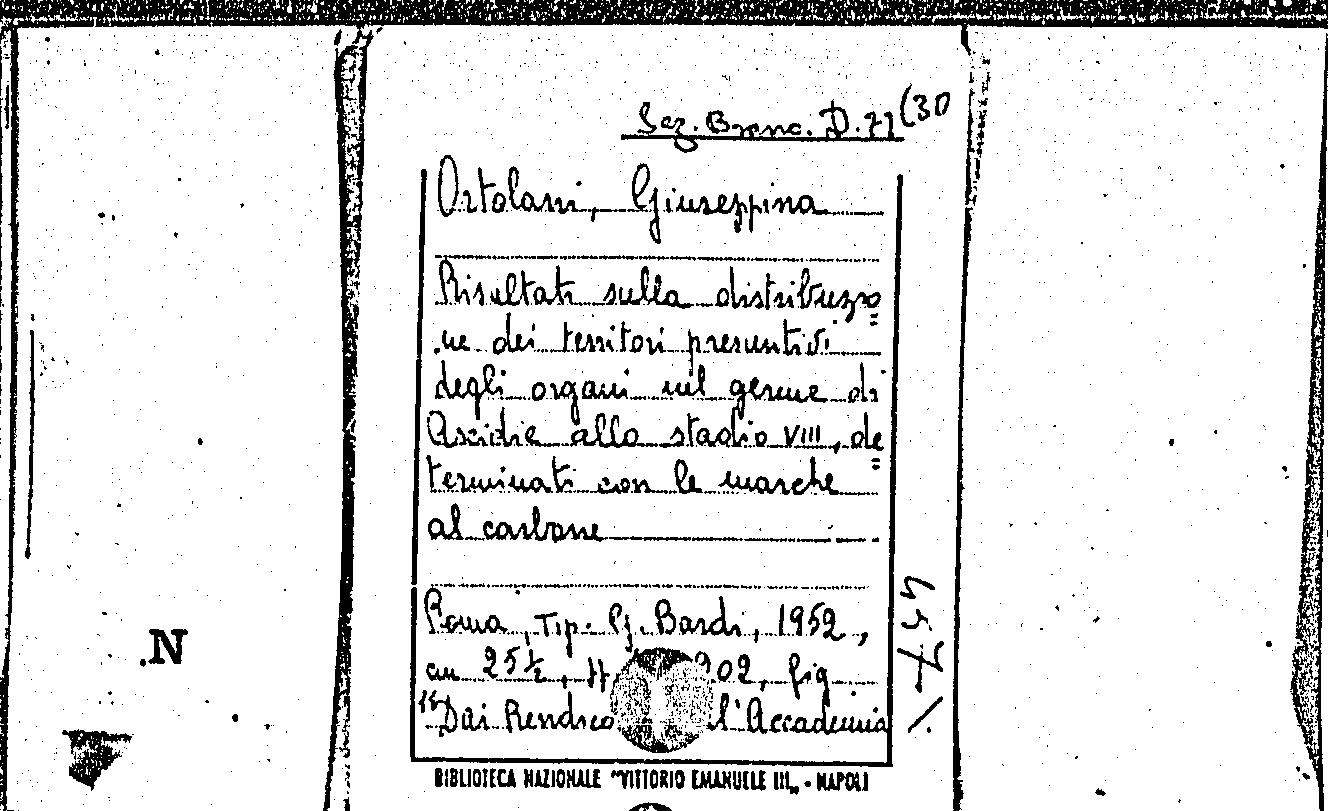 Sez. Branc. D. 71 (30
Ortolani, Giuseppina
Risultati sulla distribuzio=
ne dei territori presuntivi
degli organi nel germe di
Ascidie allo stadio VIII, de=
terminati con le marche
al carbone
Roma, Tip. G. Bardi, 1952,
cm 25½, 02, fig
"Dai l'Accademia
BIBLIOTECA NAZIONALE "VITTORIO EMANUELE III„ - NAPOLI
.N